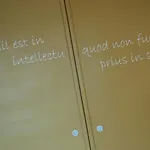 il est in
intellectu
quod non fu
prius in s